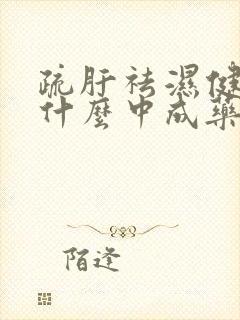 疏肝祛濕健
什麼中成藥
陌逢